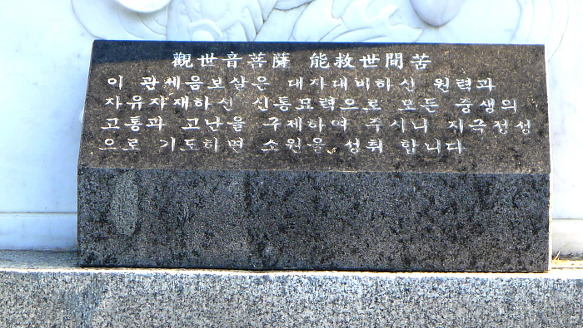 觀世音菩薩 能救世間苦
이 관세음보살은 대자대비하신 원력과
자유자재하신 신통묘력으로 모든 중생의
고통과 고난을 구제하여 주시니 지극정성
으로 기도하면 소원을 성취 합니다